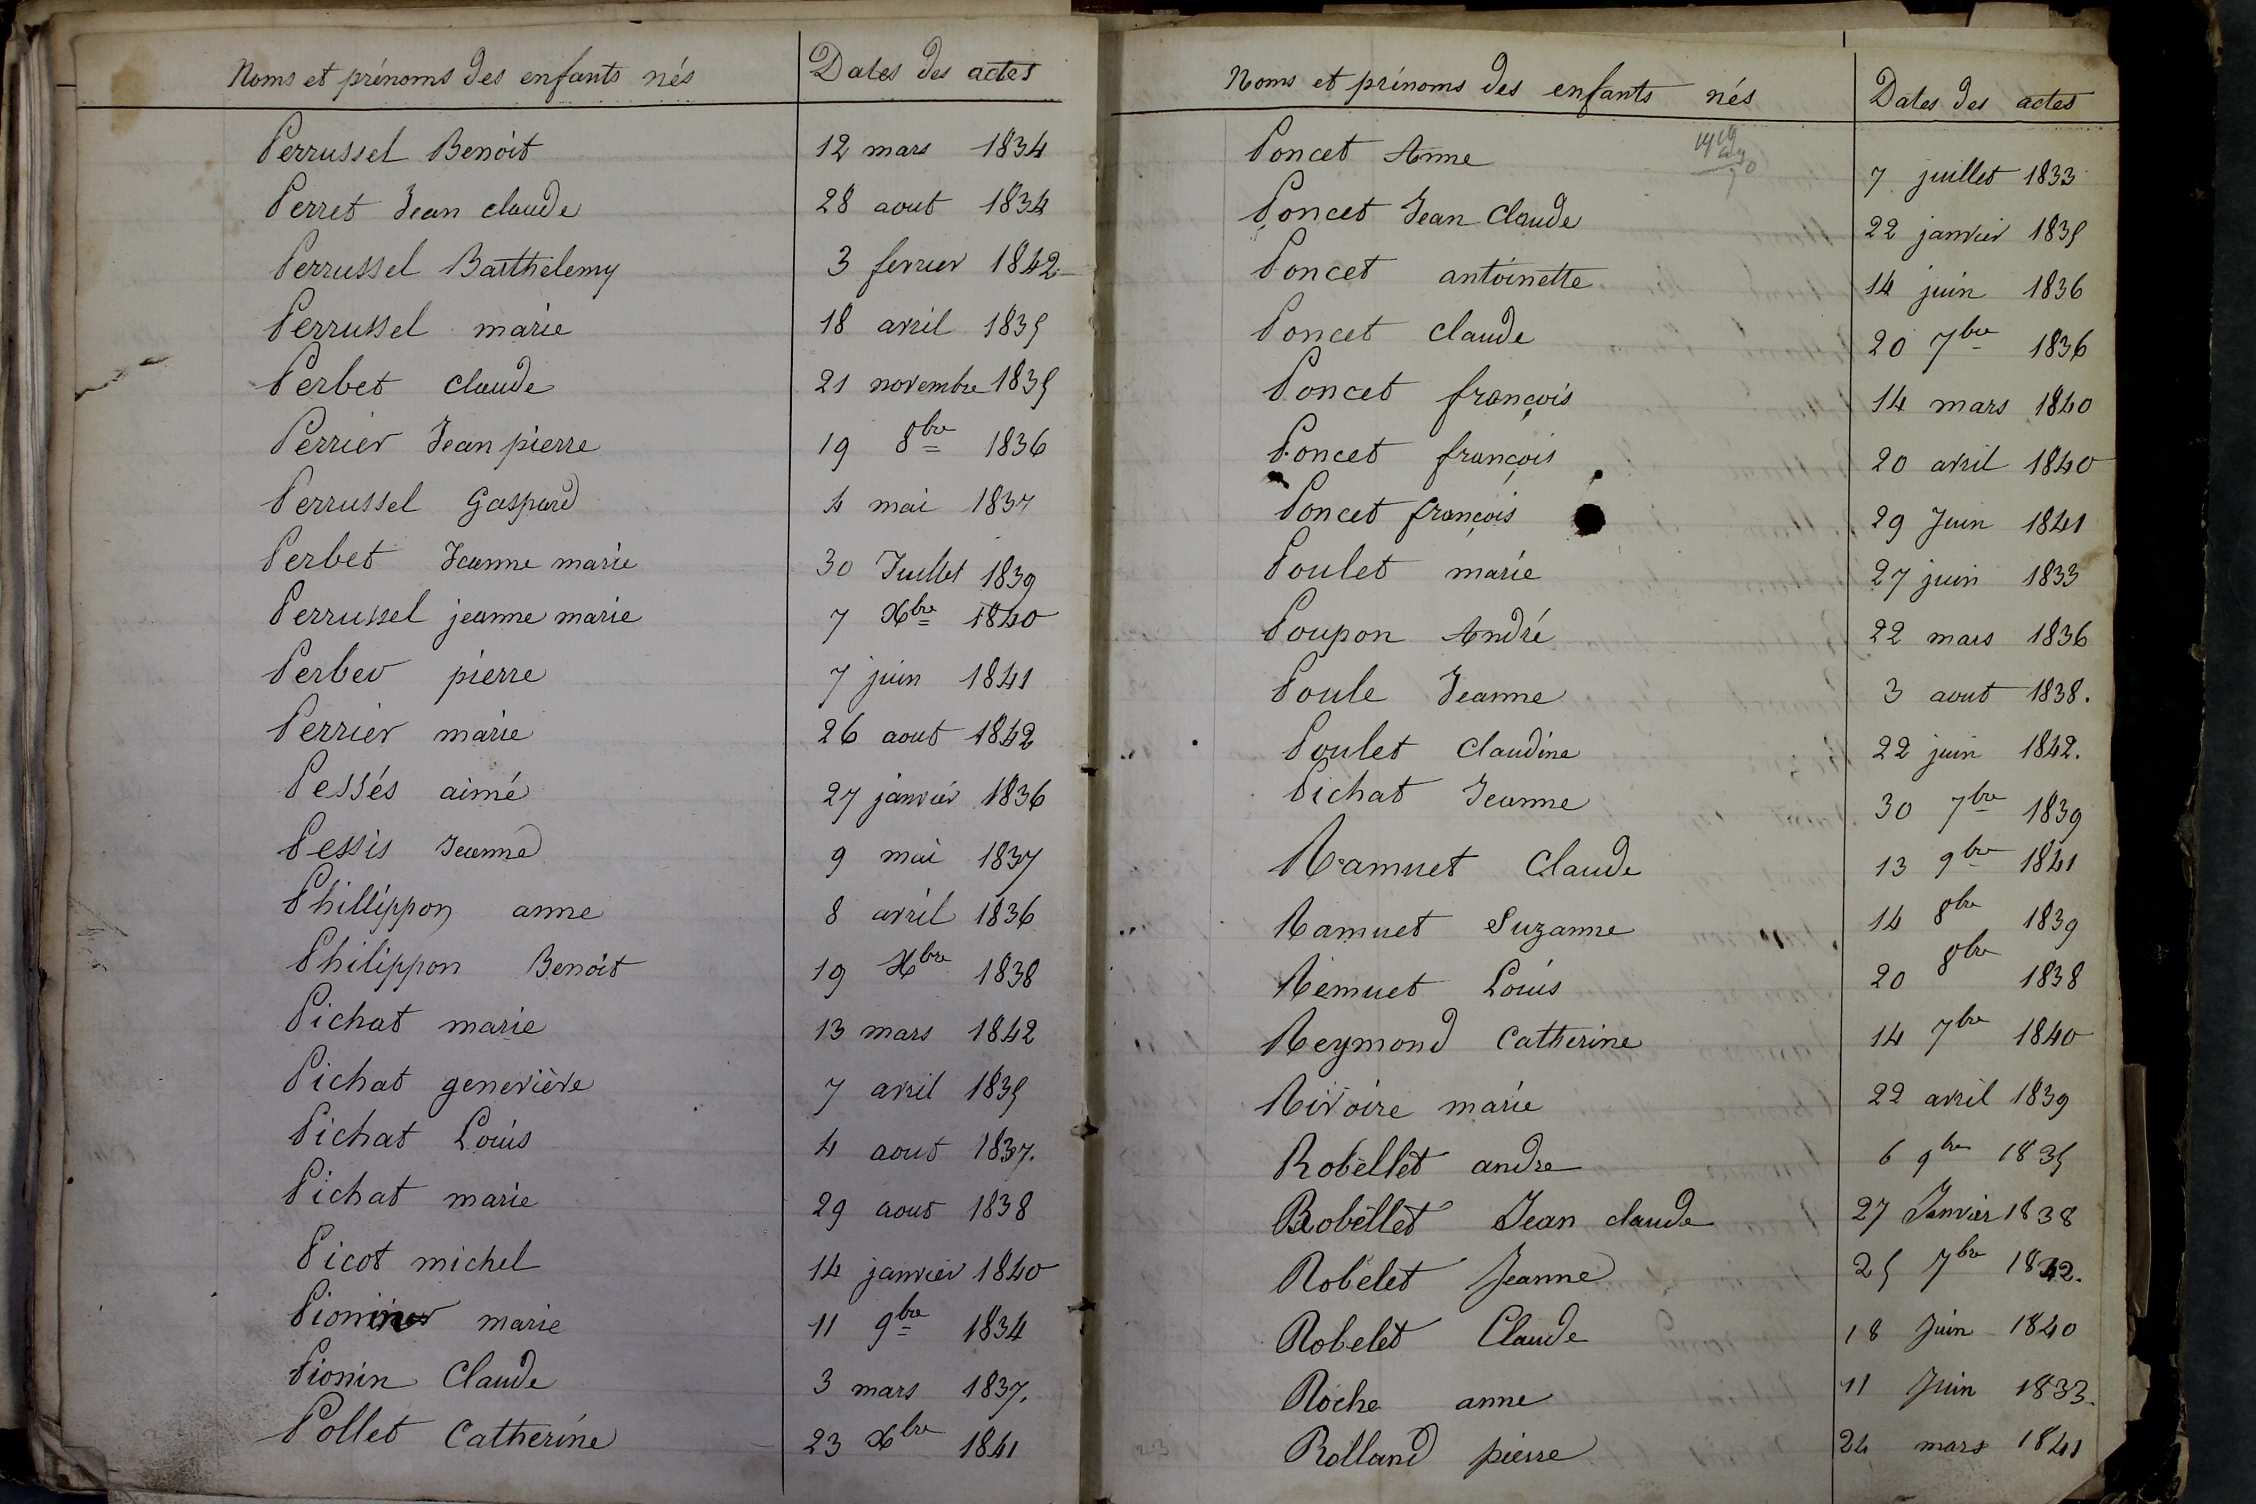 Noms et prénoms des enfants nés Dates des actes
Perrussel Benoit 12 mars 1834
Perret Jean claude 28 aout 1834
Perrussel Barthélemy 3 fevrier 1842
Perrussel marie 18 avril 1835
Perbet claude 21 novembre 1835
Perrier Jean pierre 19 8bre 1836
Perrussel Gaspard 4 mai 1837
Perbet Jeanne marie 30 Juillet 1839
Perrussel jeanne marie 7 Xbre 1840
Perbev pierre 7 juin 1841
Perrier marie 26 aout 1842
Pessés aimé 27 janvier 1836
Pessis Jeanne 9 mai 1837
Phillippon anne 8 avril 1836
Philippon Benoit 19 Xbre 1838
Pichat marie 13 mars 1842
Pichat genevière 7 avril 1835
Pichat Louis 4 aout 1837.
Pichat marie 29 aout 1838
Picot michel 14 janvier 1840
marie 11 9bre 1834
Pionin Claude 3 mars 1837.
Pollet Catherine 23 Xbre 1841
Noms et prénoms des enfants nés Dates des actes
Poncet Anne 7 juillet 1833
Poncet Jean Claude 22 janvier 1835
Poncet antoinette 14 juin 1836
Poncet claude 20 7bre 1836
Poncet françois 14 mars 1840
Poncet françois 20 avril 1840
Poncet françois 29 Juin 1841
Poulet marie 27 juin 1833
Poupon André 22 mars 1836
Poule Jeanne 3 aout 1838.
Poulet Claudine 22 juin 1842.
Pichat Jeanne 30 7bre 1839
Ramuet Claude 13 9bre 1841
Ramuet Suzanne 14 8bre 1839
Rémuet Louis 20 8bre 1838
Reymond Catherine 14 7bre 1840
Rivoire marie 22 avril 1839
Robellet andre 6 9bre 1835
Robellet Jean claude 27 Janvier 1838
Robelet Jeanne 25 7bre 1842.
Robelet Claude 18 Juin 1840
Roche anne 11 Juin 1833.
Rolland pierre 24 mars 1841